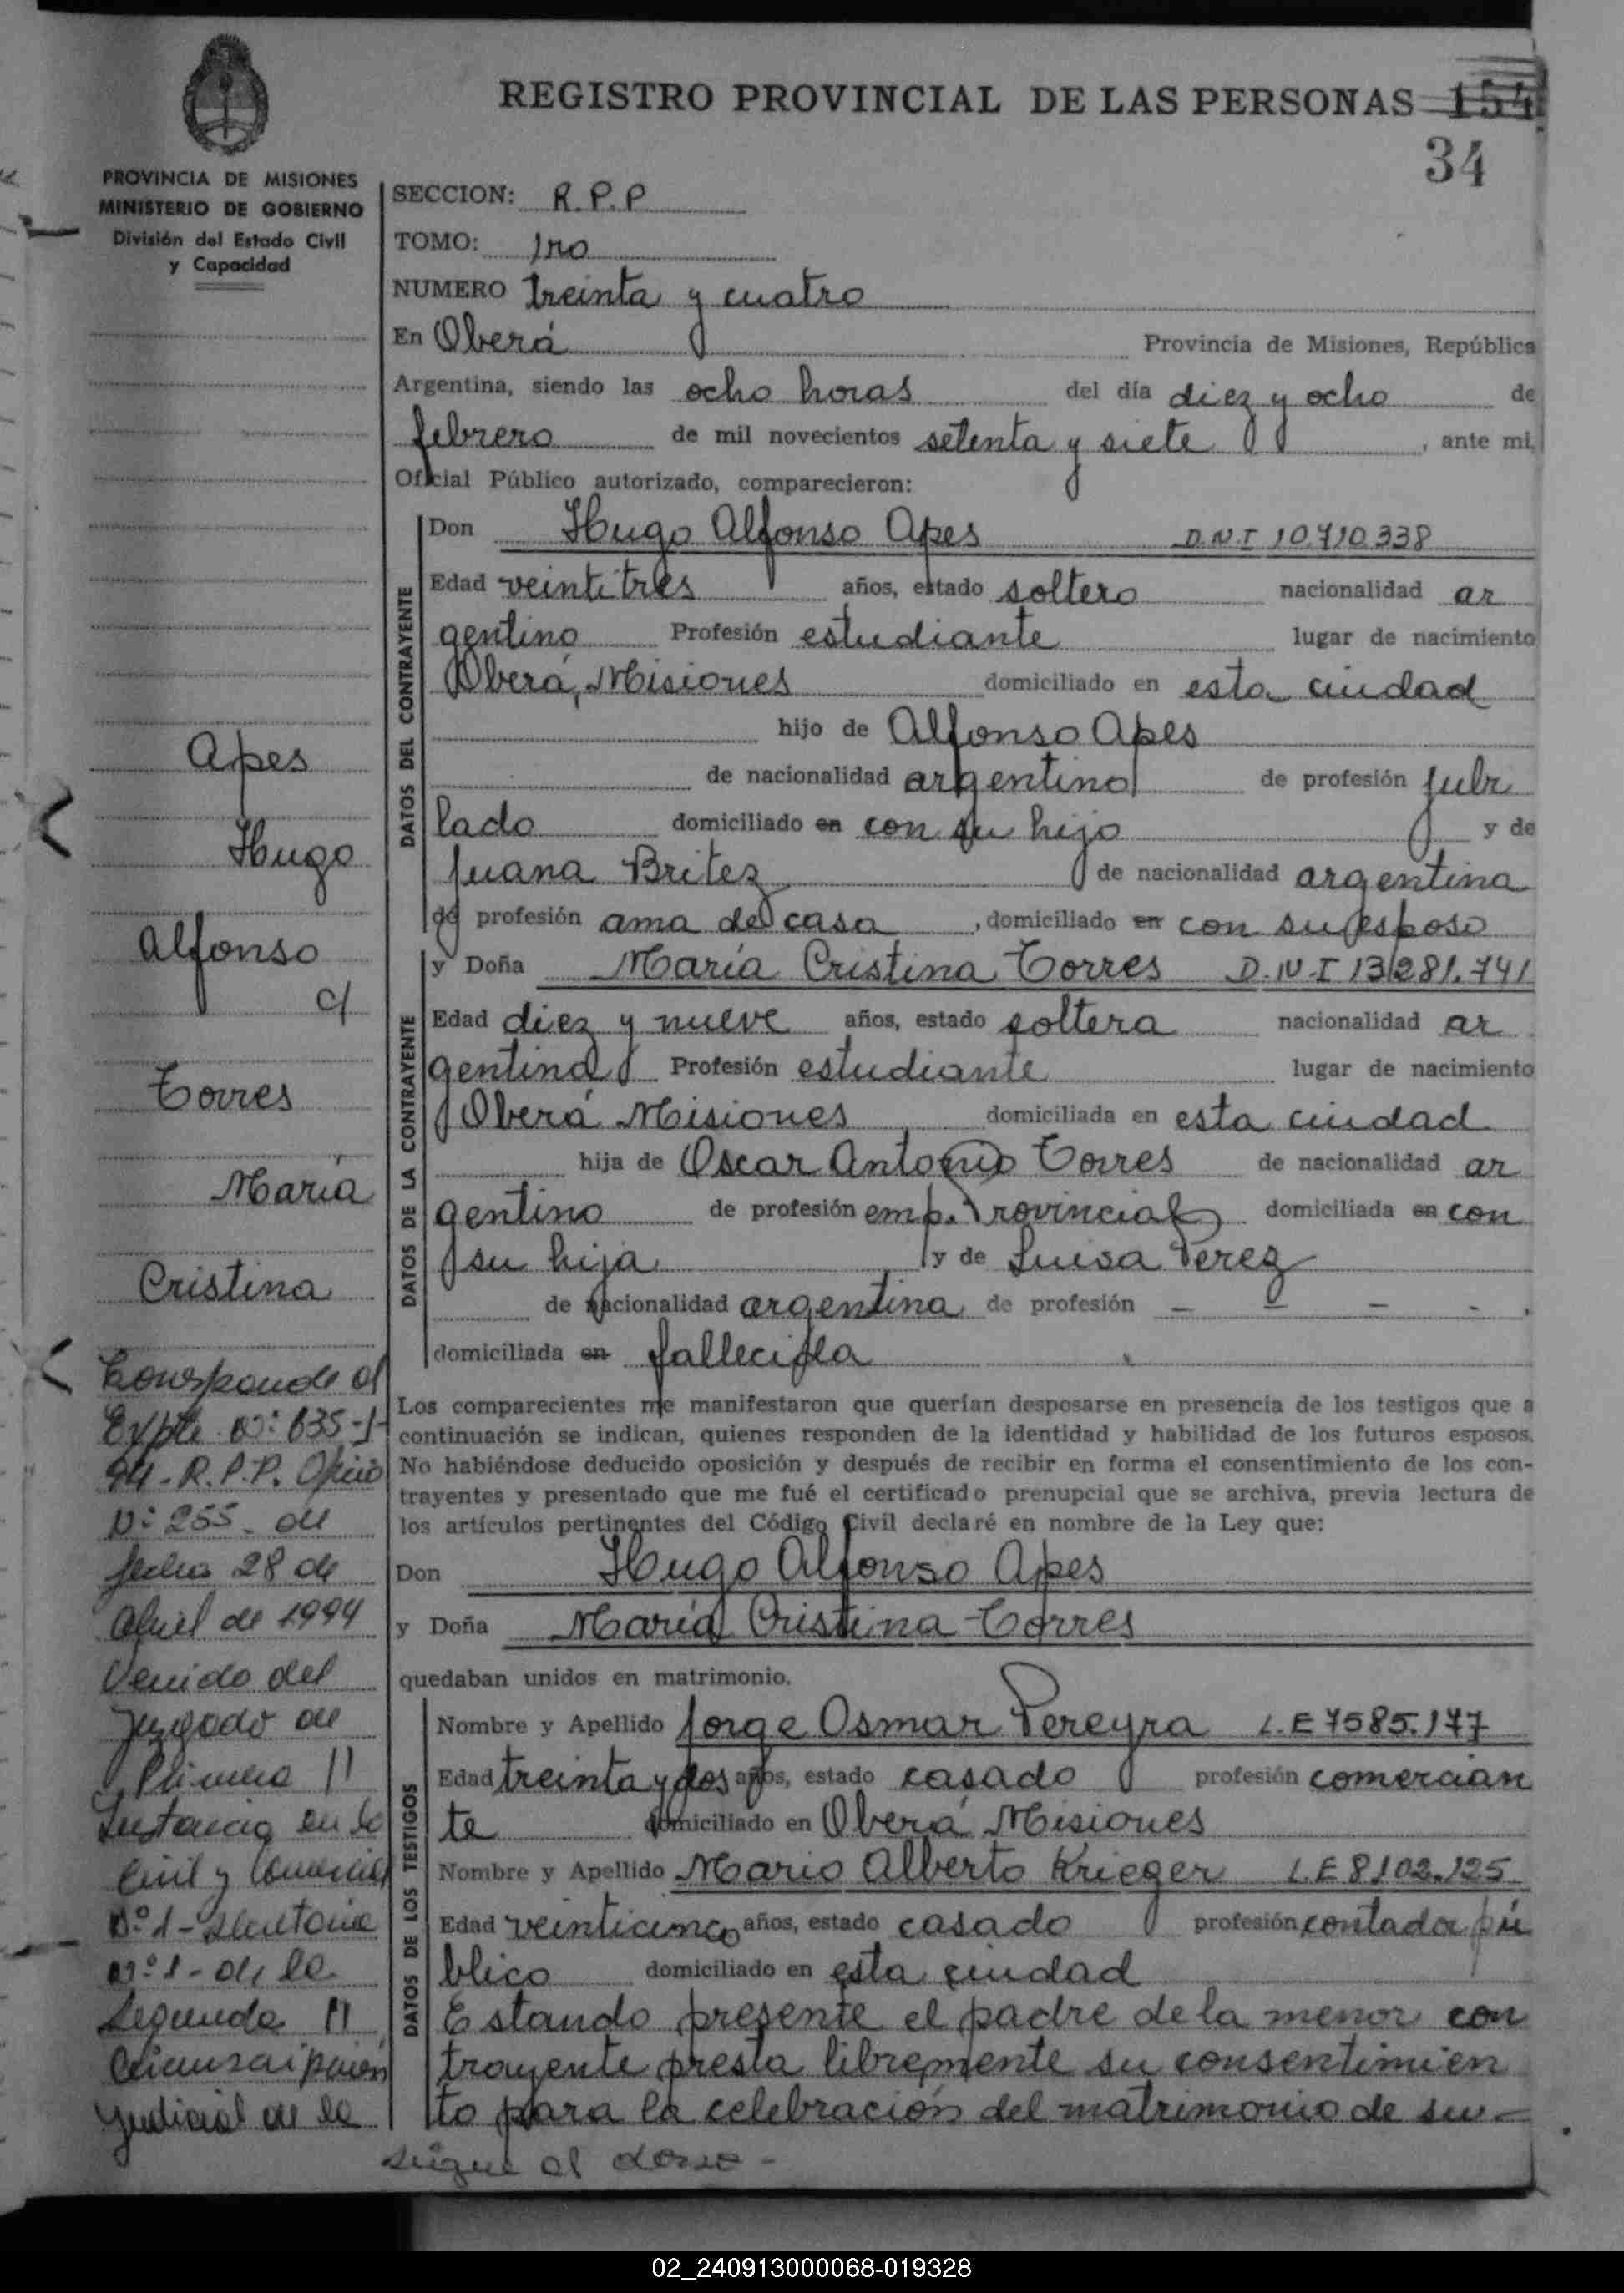 REGISTRO PROVINCIAL DE LAS PERSONAS 154
34
PROVINCIA DE MISIONES
MINISTERIO DE GOBIERNO
División del Estado Civil
y Capacidad
SECCION: R.P.P
TOMO: 1ro
NUMERO treinta y cuatro
En Oberá Provincia de Misiones, República
Argentina, siendo las ocho horas del día diez y ocho de
febrero de mil novecientos setenta y siete, ante mi,
Oficial Público autorizado, comparecieron:
DATOS DEL CONTRAYENTE
Don Hugo Alfonso Apes D.N.I 10.710.338
Edad veintitrés años, estado soltero nacionalidad ar
gentino Profesión estudiante lugar de nacimiento
Oberá, Misiones domiciliado en esta ciudad
hijo de Alfonso Apes
de nacionalidad argentino de profesión jubi
lado domiciliado en con su hijo y de
Juana Britez de nacionalidad argentina
de profesión ama de casa, domiciliado en con su esposo
DATOS DE LA CONTRAYENTE
y Doña María Cristina Torres D.N.I 13.281.741
Edad diez y nueve años, estado soltera nacionalidad ar
gentina Profesión estudiante lugar de nacimiento
Oberá Misiones domiciliada en esta ciudad
hija de Oscar Antonio Torres de nacionalidad ar
gentino de profesión emp. Provincial domiciliada en con
su hija y de Luisa Perez
de nacionalidad argentina de profesión - - - -.
domiciliada en fallecida
Los comparecientes me manifestaron que querían desposarse en presencia de los testigos que a
continuación se indican, quienes responden de la identidad y habilidad de los futuros esposos.
No habiéndose deducido oposición y después de recibir en forma el consentimiento de los con-
trayentes y presentado que me fué el certificado prenupcial que se archiva, previa lectura de
los artículos pertinentes del Código Civil declaré en nombre de la Ley que:
Don Hugo Alfonso Apes
y Doña María Cristina Torres
quedaban unidos en matrimonio.
DATOS DE LOS TESTIGOS
Nombre y Apellido Jorge Osmar Pereyra L.E 7585.177
Edad treinta y dos años, estado casado profesión comercian
te domiciliado en Oberá Misiones
Nombre y Apellido Mario Alberto Krieger L.E 8102.125
Edad veinticinco años, estado casado profesión contador pú
blico domiciliado en esta ciudad
Estando presente el padre de la menor con
trayente presta libremente su consentimien
to para la celebración del matrimonio de su-
sigue al dorso -
Apes
Hugo
Alfonso
c/
Torres
María
Cristina
Corresponde al
Expte. Nº: 635-1-
94-R.P.P. Oficio
Nº: 255- de
fecha 28 de
abril de 1994
Venido del
Juzgado de
Primera //
Instancia en lo
Civil y Comercial
Nº 1- Secretaría
Nº 1- de la
Segunda //
Circunscripción
Judicial de la
02_240913000068-019328